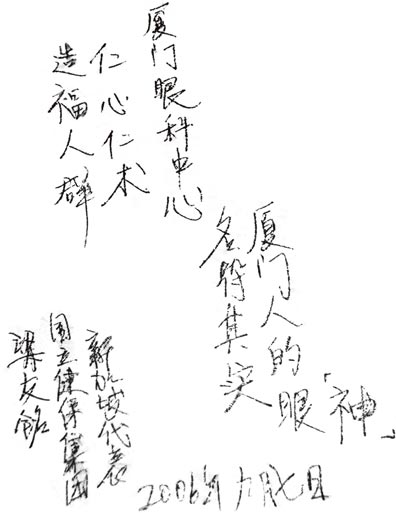 厦门眼科中心
仁心仁术
造福人群
厦门人的眼「神」
名符其实
新加坡代表
国立健保集团
2006年九月七日